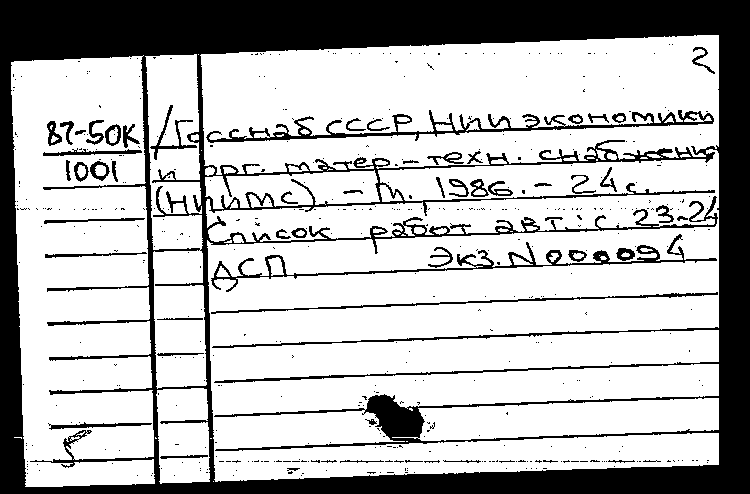 2
87-50К /Госснаб СССР, НИИ экономики
1001 и орг. матер.-техн. снабжения
(НИИМС). - М., 1986. - 24 с.
Список работ авт.: с. 23-24
ДСП. Экз. N 000094
5